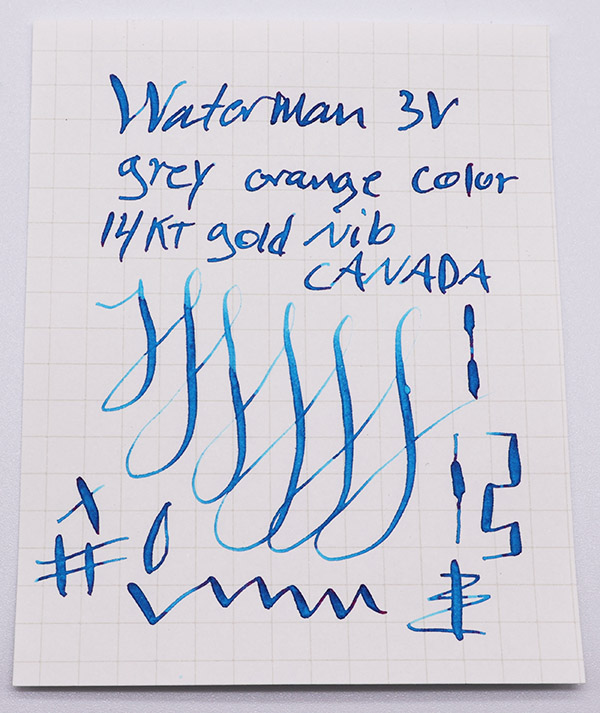 Waterman 3V
grey orange color
14KT gold Nib
CANADA